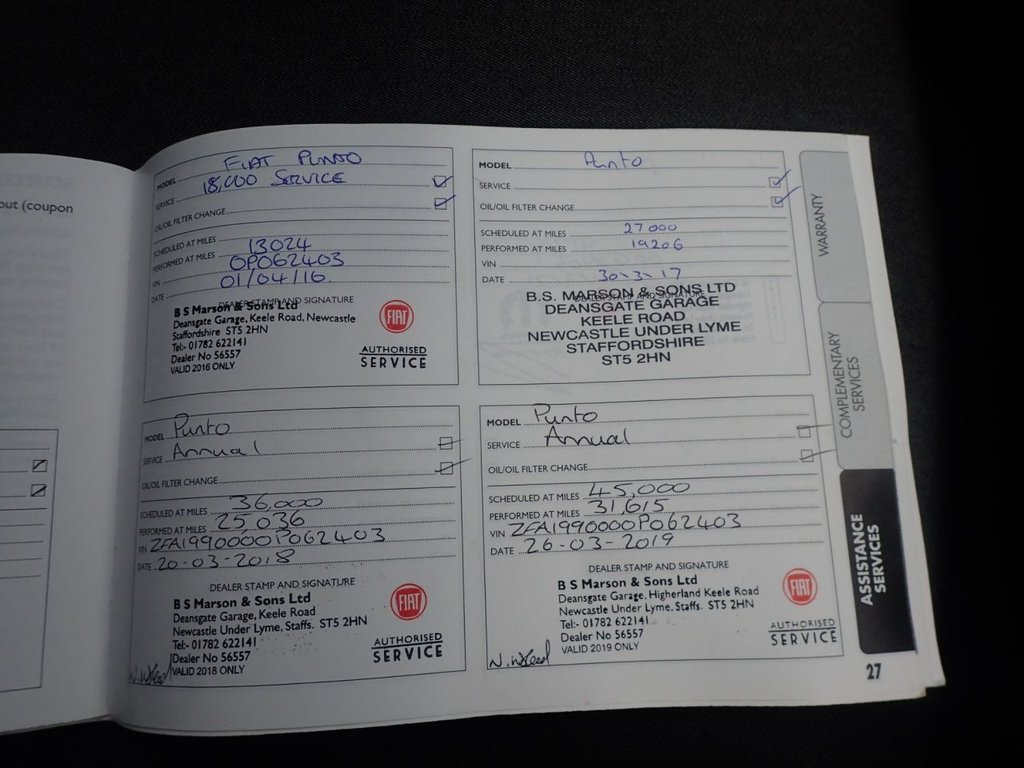 out (coupon
MODEL FIAT PUNTO
SERVICE 18,000 SERVICE
OIL/OIL FILTER CHANGE
SCHEDULED AT MILES
PERFORMED AT MILES 13024
VIN OP062403
DATE 01/04/16.
DEALER STAMP AND SIGNATURE
B S Marson & Sons Ltd
Deansgate Garage, Keele Road, Newcastle
Staffordshire ST5 2HN
Tel:- 01782 622141
Dealer No 56557
VALID 2016 ONLY
FIAT
AUTHORISED
SERVICE
MODEL Punto
SERVICE
OIL/OIL FILTER CHANGE
SCHEDULED AT MILES 27000
PERFORMED AT MILES 19206
VIN
DATE 30-3-17
B.S. MARSON & SONS LTD
DEANSGATE GARAGE
KEELE ROAD
NEWCASTLE UNDER LYME
STAFFORDSHIRE
ST5 2HN
MODEL Punto
SERVICE Annual
OIL/OIL FILTER CHANGE
SCHEDULED AT MILES 36,000
PERFORMED AT MILES 25,036
VIN ZFA1990000P062403
DATE 20-03-2018
DEALER STAMP AND SIGNATURE
B S Marson & Sons Ltd
Deansgate Garage, Keele Road
Newcastle Under Lyme, Staffs. ST5 2HN
Tel:- 01782 622141
Dealer No 56557
VALID 2018 ONLY
FIAT
AUTHORISED
SERVICE
MODEL Punto
SERVICE Annual
OIL/OIL FILTER CHANGE
SCHEDULED AT MILES 45,000
PERFORMED AT MILES 31,615
VIN ZFA1990000P062403
DATE 26-03-2019
DEALER STAMP AND SIGNATURE
B S Marson & Sons Ltd
Deansgate Garage, Higherland Keele Road
Newcastle Under Lyme, Staffs. ST5 2HN
Tel:- 01782 622141
Dealer No 56557
VALID 2019 ONLY
FIAT
AUTHORISED
SERVICE
WARRANTY
COMPLEMENTARY
SERVICES
ASSISTANCE
SERVICES
27